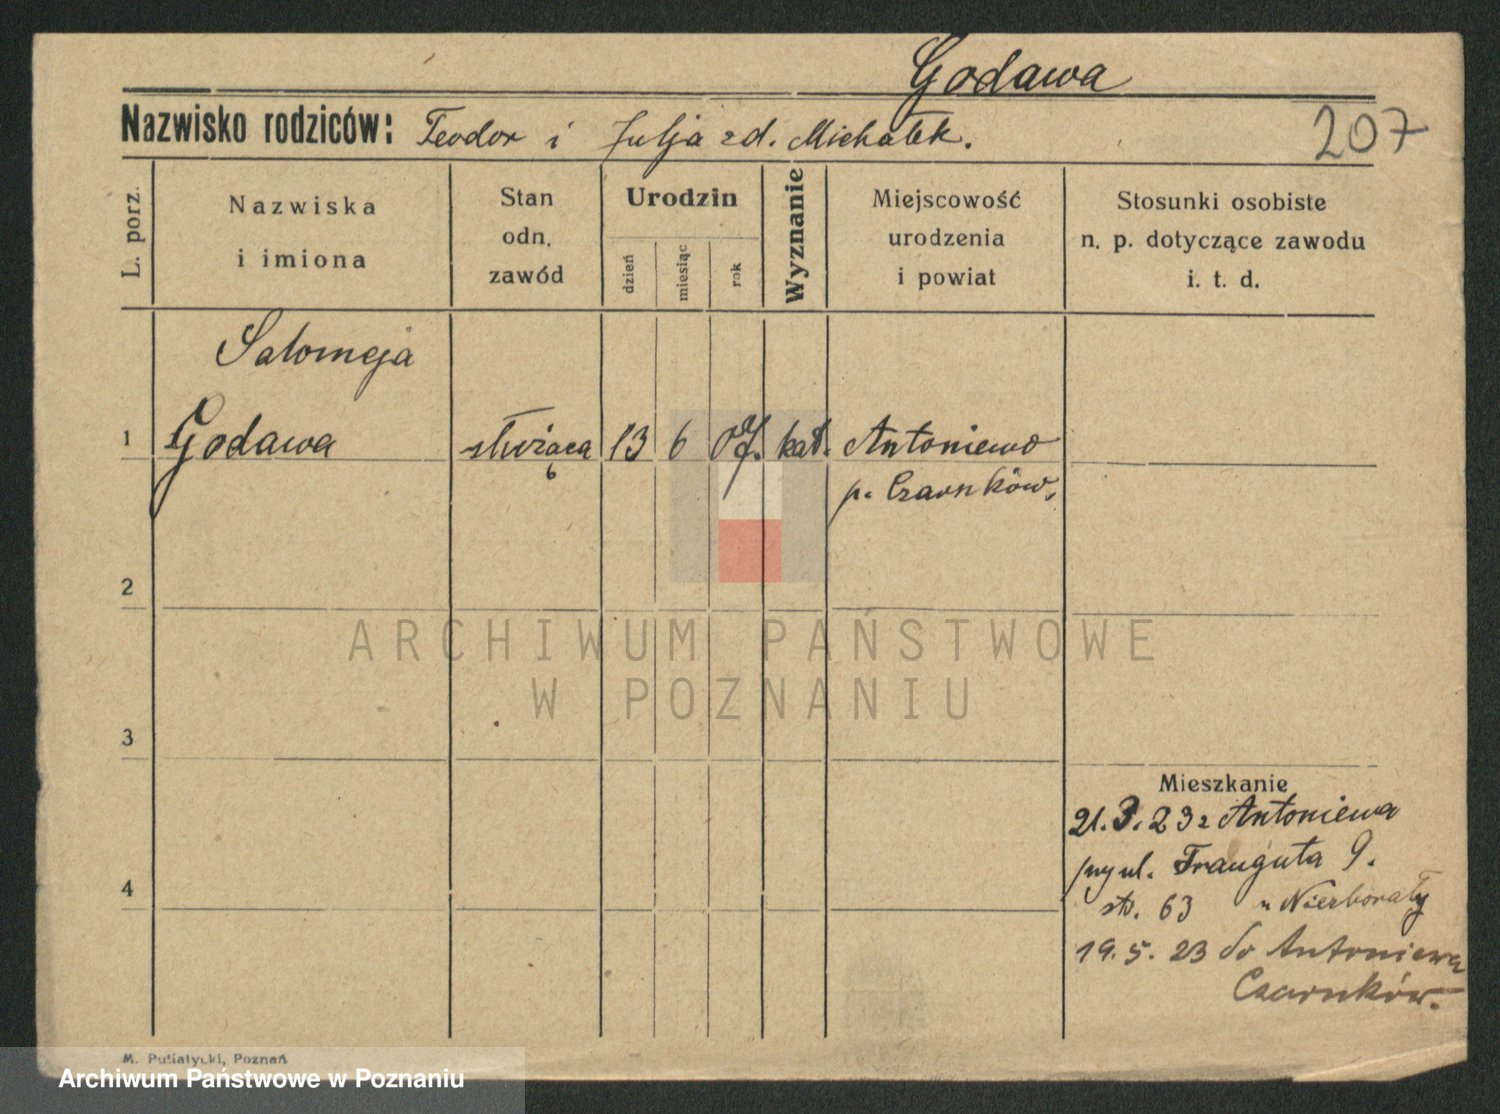 Godawa
Nazwisko rodziców: Teodor i Julja zd. Michałek.
207
L. porz.
Nazwiska
i imiona
Stan
odn.
zawód
Urodzin
dzień
miesiąc
rok
Wyznanie
Miejscowość
urodzenia
i powiat
Stosunki osobiste
n. p. dotyczące zawodu
i. t. d.
Salomeja
1 Godawa służąca 13 6 07. kat. Antoniewo
p. Czarnków.
2
3
4
ARCHIWUM PAŃSTWOWE
W POZNANIU
Mieszkanie
21.3.23 z Antoniewa
przy ul. Trauguta 9.
str. 63 u
19.5.23 do Antoniewa
Czarnków.
M. Putiatycki, Poznań
Archiwum Państwowe w Poznaniu